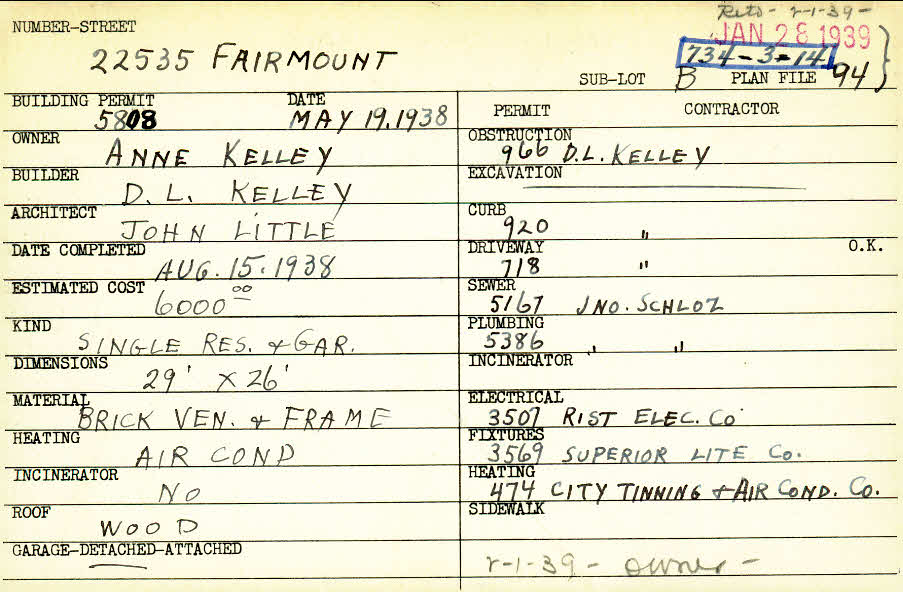 Retd - 2-1-39-
JAN 28 1939
NUMBER-STREET
22535 FAIRMOUNT
734-3-14
SUB-LOT B PLAN FILE 94
BUILDING PERMIT DATE
5808 MAY 19, 1938
OWNER
ANNE KELLEY
BUILDER
D. L. KELLEY
ARCHITECT
JOHN LITTLE
DATE COMPLETED
AUG. 15. 1938
ESTIMATED COST
6000 00
KIND
SINGLE RES. & GAR.
DIMENSIONS
29' X 26'
MATERIAL
BRICK VEN. & FRAME
HEATING
AIR COND
INCINERATOR
NO
ROOF
WOOD
GARAGE-DETACHED-ATTACHED
PERMIT CONTRACTOR
OBSTRUCTION
966 D.L. KELLEY
EXCAVATION
CURB
920 "
DRIVEWAY O.K.
718 "
SEWER
5167 JNO. SCHLOZ
PLUMBING
5386 " "
INCINERATOR
ELECTRICAL
3507 RIST ELEC. CO
FIXTURES
3569 SUPERIOR LITE CO.
HEATING
474 CITY TINNING & AIR COND. CO.
SIDEWALK
2-1-39- owner -